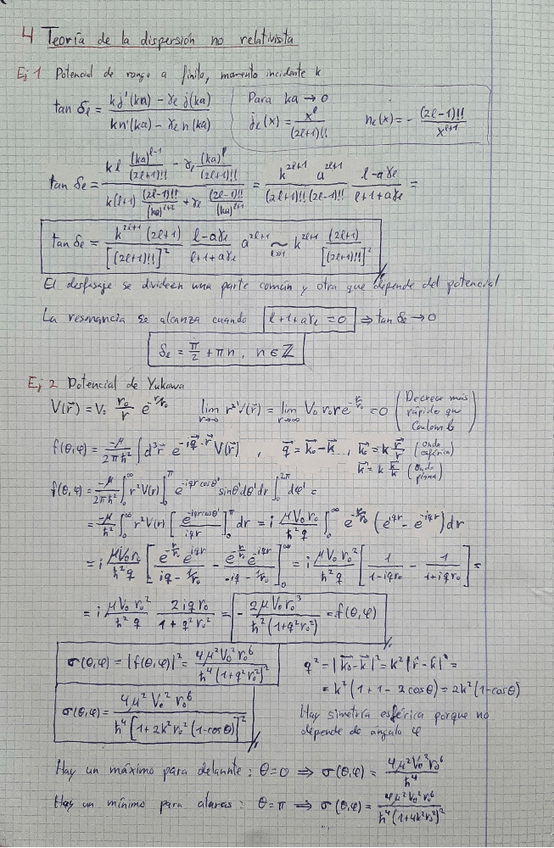 4 Teoría de la dispersión no relativista
Ej 1 Potencial de rango a finito, momento incidente k
tan δℓ = (k j'(ka) − γℓ j(ka)) / (k n'(ka) − γℓ n(ka))
Para ka → 0
jℓ(x) = x^ℓ / (2ℓ+1)!!    nℓ(x) = − (2ℓ−1)!! / x^(ℓ+1)
tan δℓ = (kℓ (ka)^(ℓ−1)/(2ℓ+1)!! − γℓ (ka)^ℓ/(2ℓ+1)!!) / (k(ℓ+1) (2ℓ−1)!!/(ka)^(ℓ+2) + γℓ (2ℓ−1)!!/(ka)^(ℓ+1)) = k^(2ℓ+1) a^(2ℓ+1) / ((2ℓ+1)!! (2ℓ−1)!!) (ℓ−aγℓ)/(ℓ+1+aγℓ) =
tan δℓ = k^(2ℓ+1) (2ℓ+1) / [(2ℓ+1)!!]² (ℓ−aγℓ)/(ℓ+1+aγℓ) a^(2ℓ+1) ~ k^(2ℓ+1) (2ℓ+1)/[(2ℓ+1)!!]²
El desfasaje se divide en una parte común y otra que depende del potencial
La resonancia se alcanza cuando ℓ+1+aγℓ = 0 ⇒ tan δℓ → 0
δℓ = π/2 + πn, n ∈ ℤ
Ej 2 Potencial de Yukawa
V(r⃗) = V₀ r₀/r e^(−r/r₀)    lim r→∞ r²V(r⃗) = lim r→∞ V₀ r₀ r e^(−r/r₀) = 0 (Decrece más rápido que Coulomb)
f(θ,φ) = −μ/(2πħ²) ∫ d³r⃗ e^(−iq⃗·r⃗) V(r⃗) , q⃗ = k⃗₀ − k⃗ , k⃗₀ = k r⃗/r (Onda esférica)
k⃗ = k k⃗/k (Onda plana)
f(θ,φ) = −μ/(2πħ²) ∫₀^∞ r² V(r) ∫₀^π e^(−iqr cosθ') sinθ' dθ' dr ∫₀^2π dφ' =
= −μ/ħ² ∫₀^∞ r² V(r) [e^(−iqr cosθ')/(iqr)]₀^π dr = i μV₀r₀/(ħ²q) ∫₀^∞ e^(−r/r₀) (e^(iqr) − e^(−iqr)) dr
= i μV₀r₀/(ħ²q) [e^(−r/r₀) e^(iqr)/(iq − 1/r₀) − e^(−r/r₀) e^(−iqr)/(−iq − 1/r₀)]₀^∞ = i μV₀r₀²/(ħ²q) [1/(1−iqr₀) − 1/(1+iqr₀)] =
= i μV₀r₀²/(ħ²q) 2iqr₀/(1+q²r₀²) = − 2μV₀r₀³/(ħ²(1+q²r₀²)) = f(θ,φ)
σ(θ,φ) = |f(θ,φ)|² = 4μ²V₀²r₀⁶/(ħ⁴(1+q²r₀²)²)
q² = |k⃗₀ − k⃗|² = k²|r̂ − k̂|² =
= k²(1+1−2cosθ) = 2k²(1−cosθ)
σ(θ,φ) = 4μ²V₀²r₀⁶/(ħ⁴[1+2k²r₀²(1−cosθ)]²)
Hay simetría esférica porque no
depende de ángulo φ
Hay un máximo para delante: θ=0 ⇒ σ(θ,φ) = 4μ²V₀²r₀⁶/ħ⁴
Hay un mínimo para atras: θ=π ⇒ σ(θ,φ) = 4μ²V₀²r₀⁶/(ħ⁴(1+4k²r₀²)²)